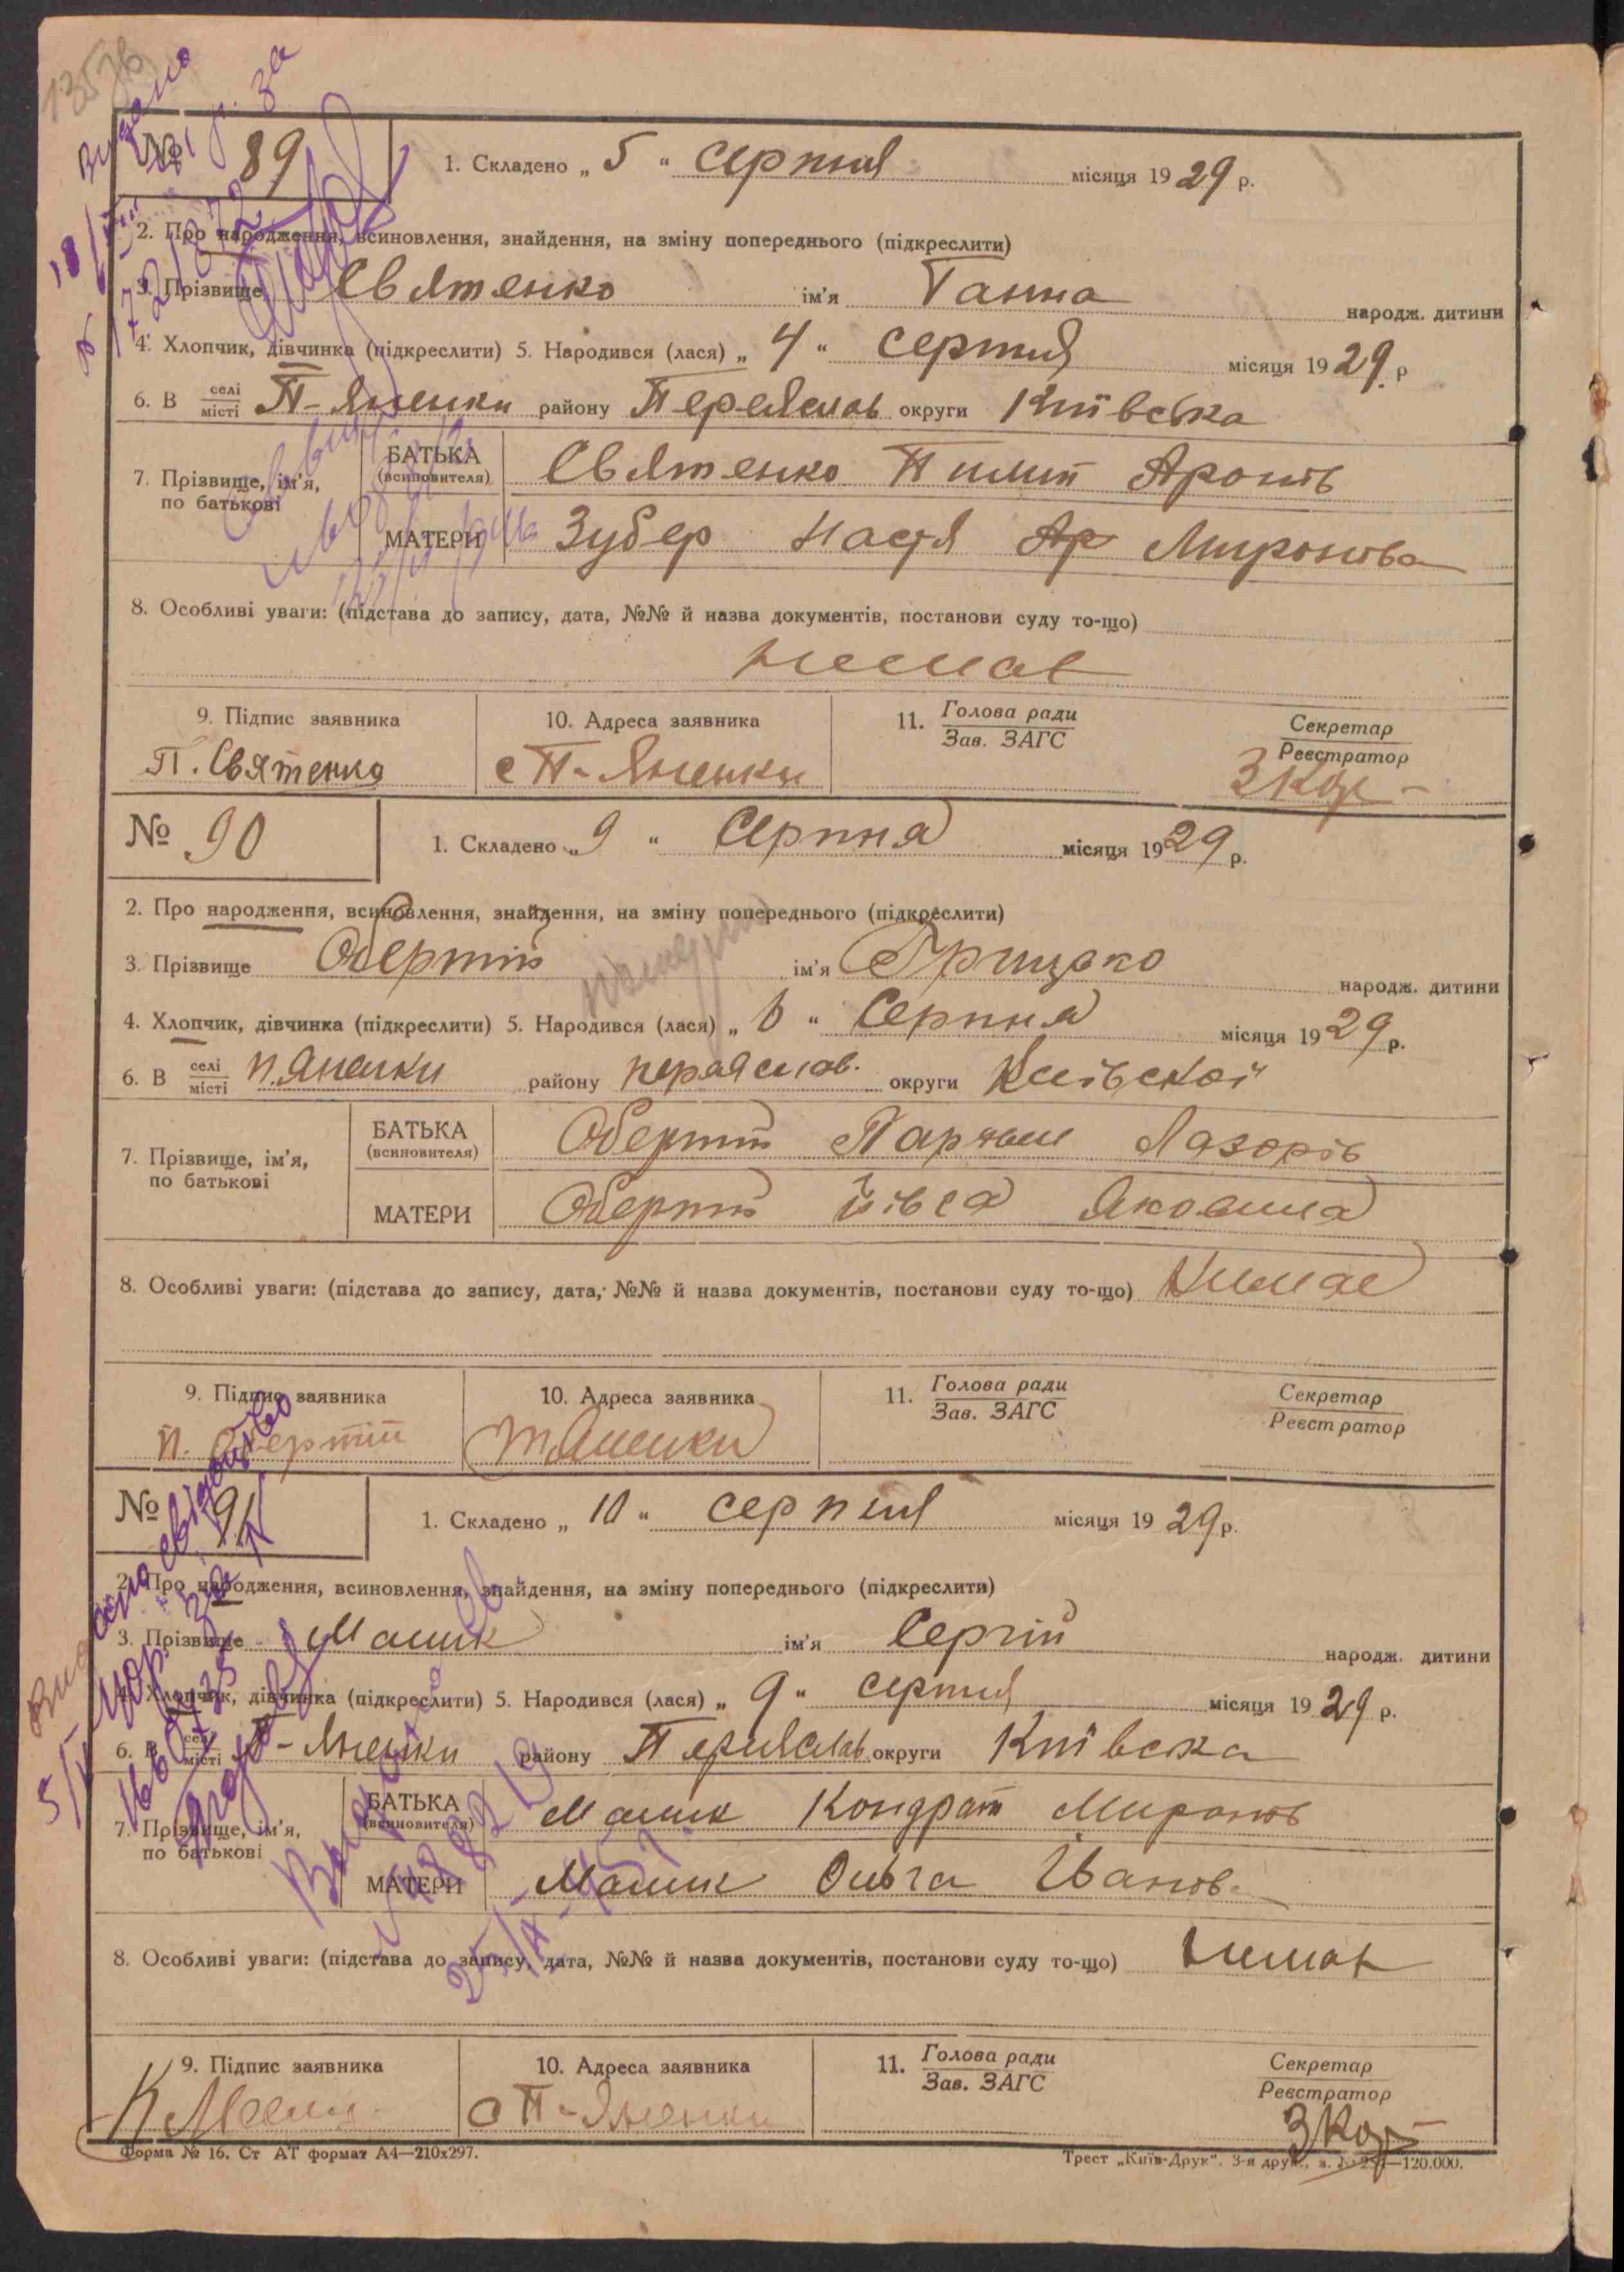 № 89
1. Складено „ 5 “ серпня місяця 1929 р.
2. Про народження, всиновлення, знайдення, на зміну попереднього (підкреслити)
3. Прізвище Святенко ім'я Ганна народж. дитини
4. Хлопчик, дівчинка (підкреслити) 5. Народився (лася) „ 4 “ серпня місяця 1929 р
6. В селі місті П-Яненки району Переяслав округи Київська
7. Прізвище, ім'я, по батькові
БАТЬКА (всиновителя) Святенко Пилип
МАТЕРИ Зубер Настя Ар Миронова
8. Особливі уваги: (підстава до запису, дата, №№ й назва документів, постанови суду то-що)
немає
9. Підпис заявника 10. Адреса заявника 11. Голова ради Зав. ЗАГС Секретар Реєстратор
П. Святенко с П-Яненки
№ 90
1. Складено „ 9 “ Серпня місяця 1929 р.
2. Про народження, всиновлення, знайдення, на зміну попереднього (підкреслити)
3. Прізвище Обертій ім'я Грицько народж. дитини
4. Хлопчик, дівчинка (підкреслити) 5. Народився (лася) „ 6 “ Серпня місяця 1929 р.
6. В селі місті п. Яненки району переяслав. округи Київскої
7. Прізвище, ім'я, по батькові
БАТЬКА (всиновителя) Обертій Лазорів
МАТЕРИ Обертій Яковина
8. Особливі уваги: (підстава до запису, дата, №№ й назва документів, постанови суду то-що) Нимає
9. Підпис заявника 10. Адреса заявника 11. Голова ради Зав. ЗАГС Секретар Реєстратор
П. Обертій п Яненки
№ 91
1. Складено „ 10 “ серпня місяця 1929 р.
2. Про народження, всиновлення, знайдення, на зміну попереднього (підкреслити)
3. Прізвище Малик ім'я Сергій народж. дитини
4. Хлопчик, дівчинка (підкреслити) 5. Народився (лася) „ 9 “ серпня місяця 1929 р.
6. В селі місті П-Яненки району Переяслав округи Київська
7. Прізвище, ім'я, по батькові
БАТЬКА (всиновителя) Малик Кондрат Миронов
МАТЕРИ Малик Ольга Іванов.
8. Особливі уваги: (підстава до запису, дата, №№ й назва документів, постанови суду то-що) нимає
9. Підпис заявника 10. Адреса заявника 11. Голова ради Зав. ЗАГС Секретар Реєстратор
К Малик с П-Яненки
Форма № 16. Ст АТ формат А4—210х297.
Трест „Київ-Друк“. 3-я друк., —120.000.